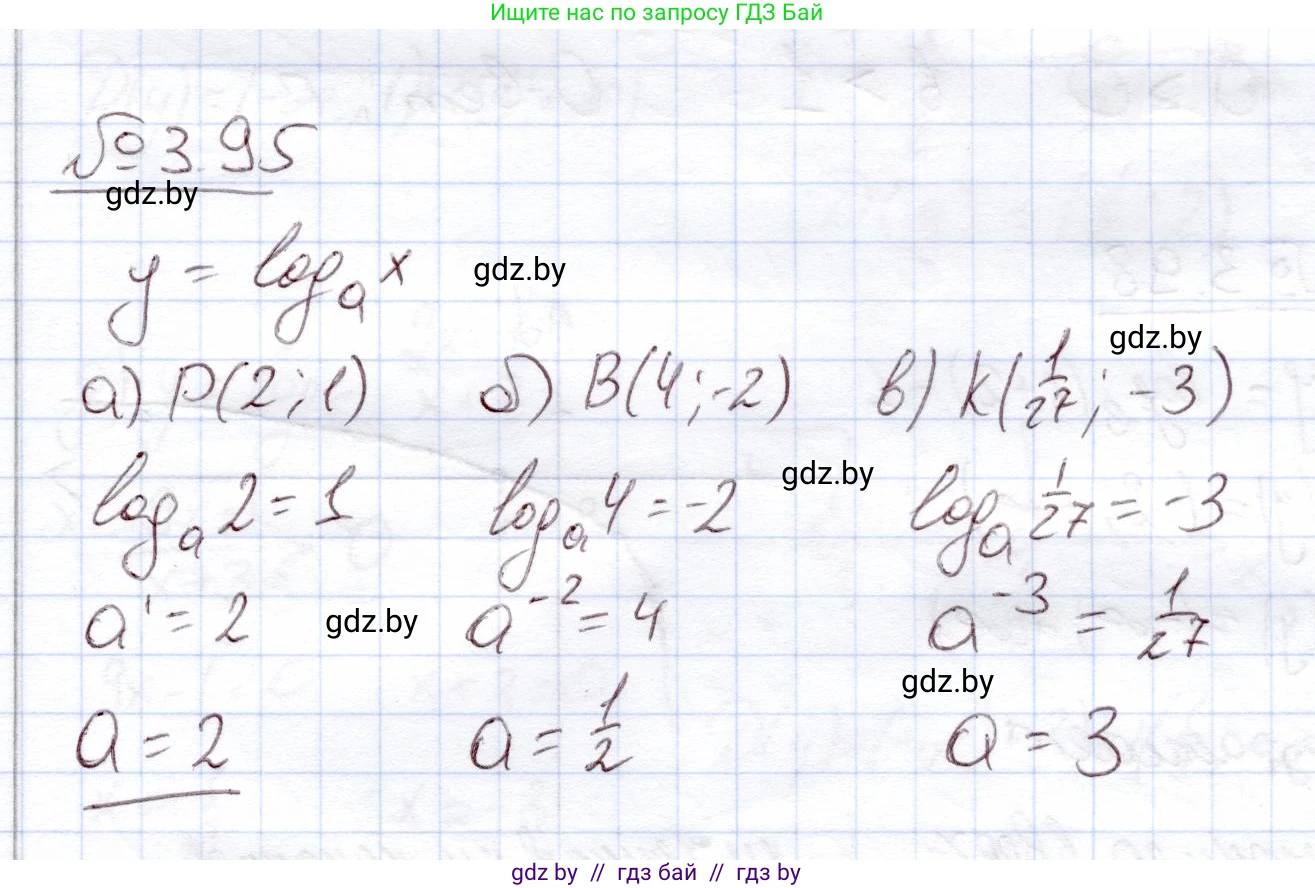 Ищите нас по запросу ГДЗ Бай
№ 3.95
gdz.by
y = logₐ x gdz.by
gdz.by
а) P(2; 1) б) B(4; -2) в) K(1/27; -3)
gdz.by
logₐ 2 = 1 logₐ 4 = -2 logₐ 1/27 = -3
a¹ = 2 gdz.by a⁻² = 4 a⁻³ = 1/27
gdz.by
a = 2 a = 1/2 a = 3
gdz.by // гдз бай // гдз by